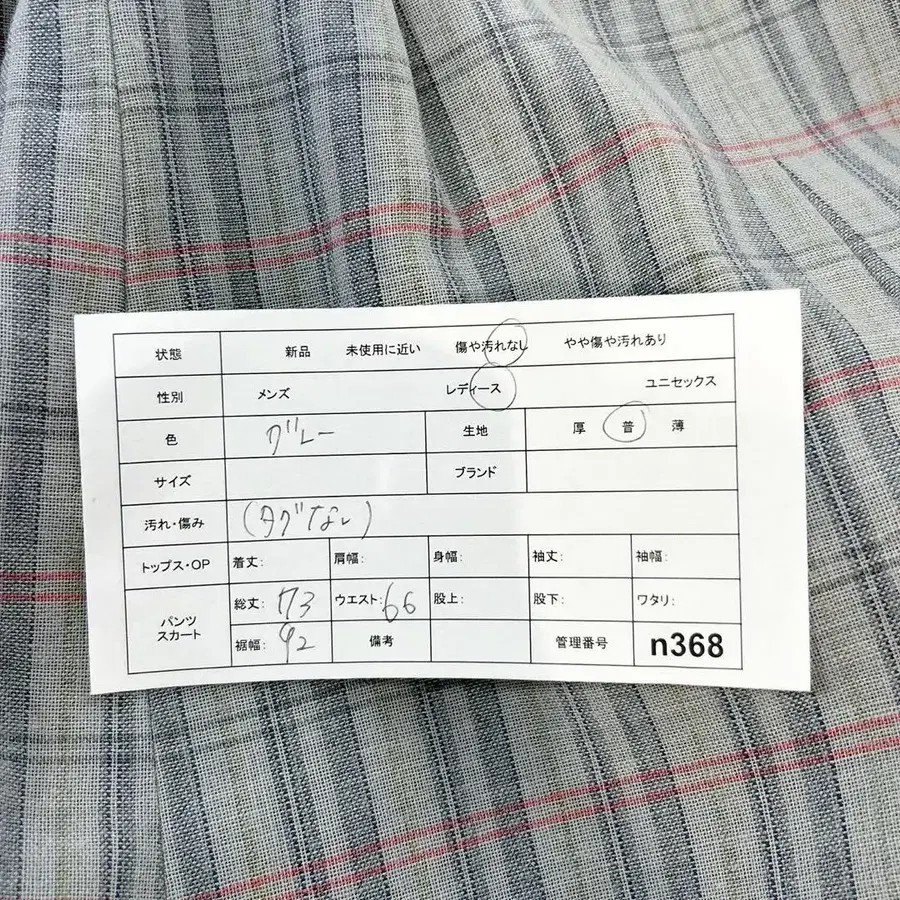 状態 新品 未使用に近い 傷や汚れなし やや傷や汚れあり
性別 メンズ レディース ユニセックス
色 グレー 生地 厚 普 薄
サイズ ブランド
汚れ・傷み (タグなし)
トップス・OP 着丈: 肩幅: 身幅: 袖丈: 袖幅:
パンツ
スカート
総丈: 73 ウエスト: 66 股上: 股下: ワタリ:
裾幅: 92 備考 管理番号 n368